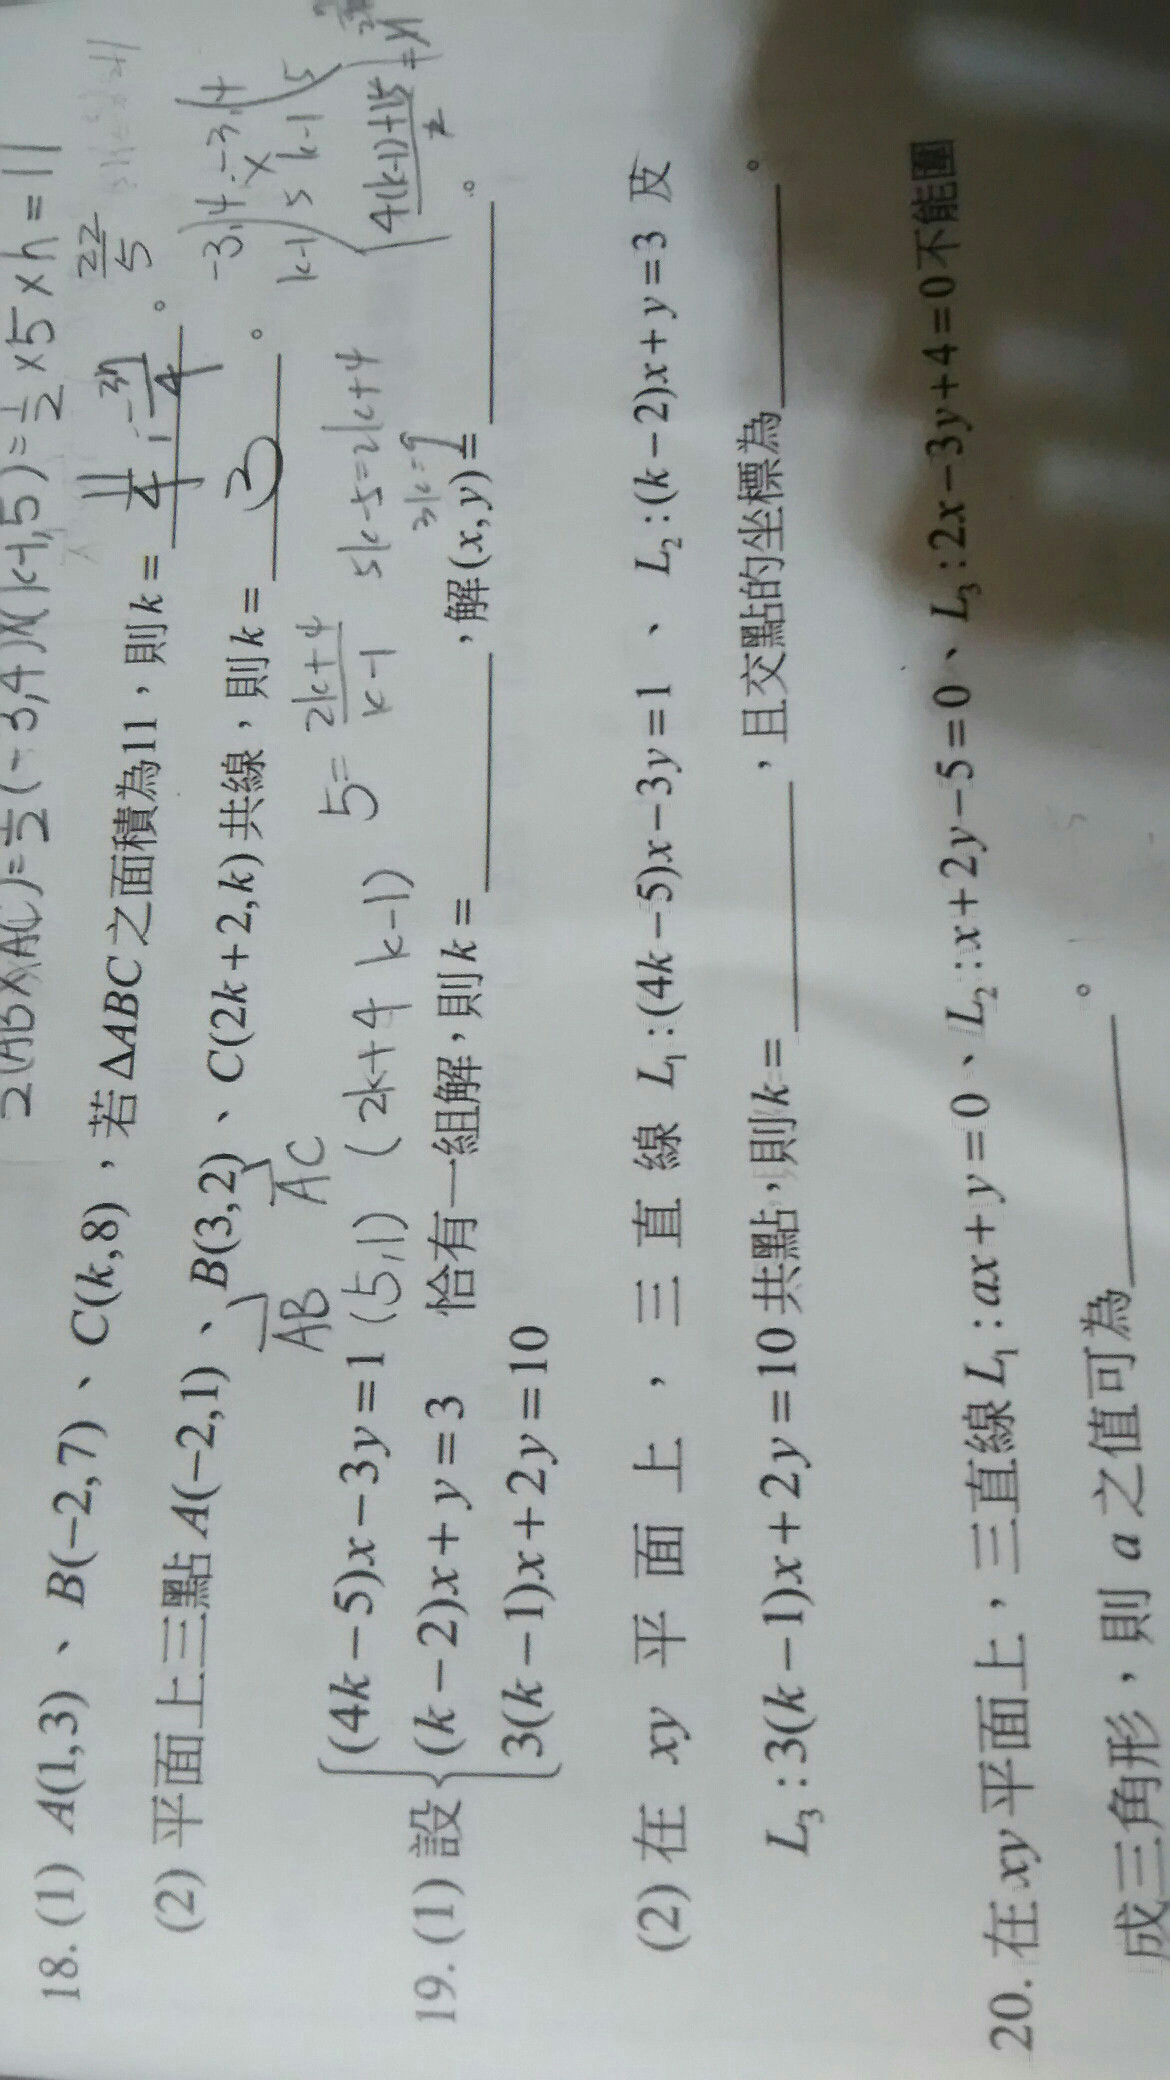 2(AB×AC)=½(-3,4)×(k-1,5)=½×5×h=11
22/5
18. (1) A(1,3)、B(-2,7)、C(k,8),若△ABC之面積為11,則k= 11/4, -37/4 。
(2) 平面上三點A(-2,1)、B(3,2)、C(2k+2,k)共線,則k= 3 。
AB AC
-3 4 -3 4
k-1 5 k-1 5
(5,1) (2k+4 k-1) 5=(2k+4)/(k-1) 5k-5=2k+4
3k=9
19. (1) 設
(4k-5)x-3y=1
(k-2)x+y=3 恰有一組解,則k=____,解(x,y)=____。
3(k-1)x+2y=10
(2) 在xy平面上,三直線L₁:(4k-5)x-3y=1、L₂:(k-2)x+y=3及
L₃:3(k-1)x+2y=10共點,則k=____,且交點的坐標為____。
20. 在xy平面上,三直線L₁:ax+y=0、L₂:x+2y-5=0、L₃:2x-3y+4=0不能圍
成三角形,則a之值可為____。